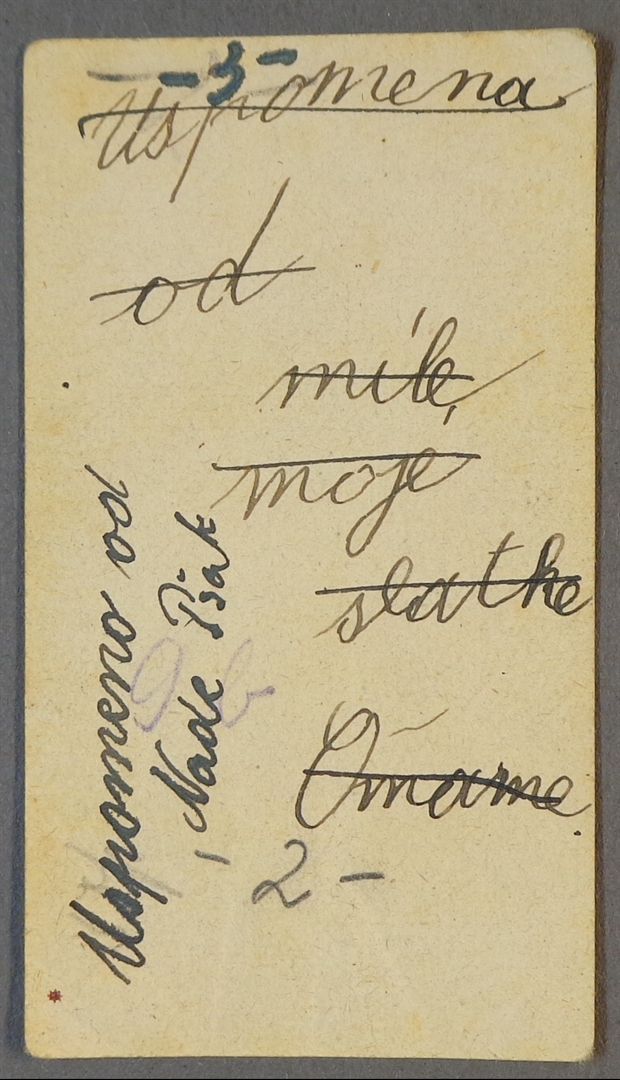 - 3 -
Uspomena
od
mile
moje
slatke
Omame
Uspomeno od
Nade Pšak
9 b
2 -